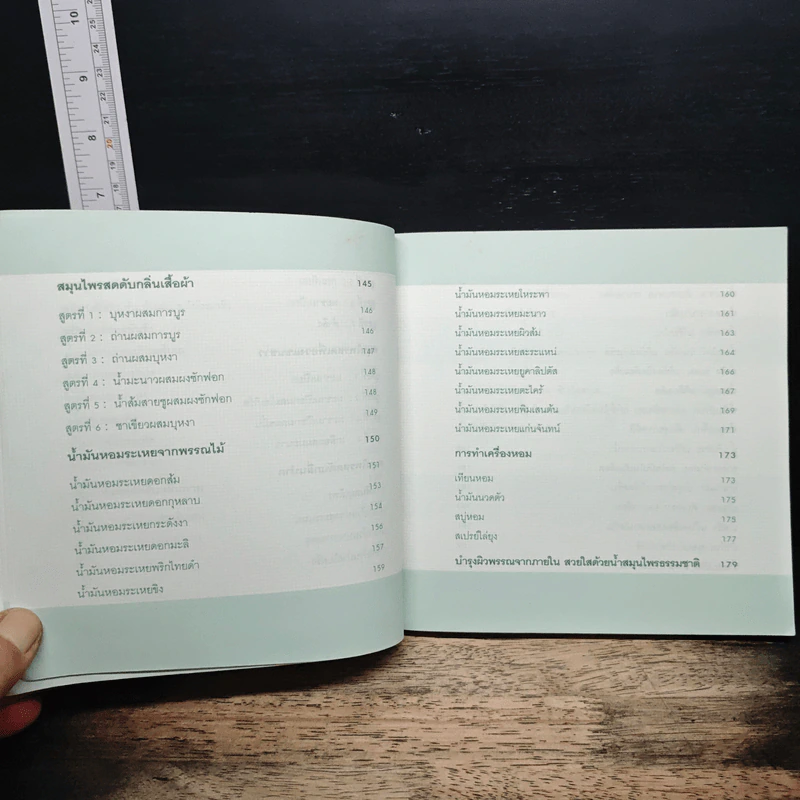 10
9
8
7
25
24
23
22
21
20
19
18
สมุนไพรสดดับกลิ่นเสื้อผ้า 145
สูตรที่ 1 : บุหงาผสมการบูร 146
สูตรที่ 2 : ถ่านผสมการบูร 146
สูตรที่ 3 : ถ่านผสมบุหงา 147
สูตรที่ 4 : น้ำมะนาวผสมผงซักฟอก 148
สูตรที่ 5 : น้ำส้มสายชูผสมผงซักฟอก 148
สูตรที่ 6 : ชาเขียวผสมบุหงา 149
น้ำมันหอมระเหยจากพรรณไม้ 150
น้ำมันหอมระเหยดอกส้ม 151
น้ำมันหอมระเหยดอกกุหลาบ 153
น้ำมันหอมระเหยกระดังงา 154
น้ำมันหอมระเหยดอกมะลิ 156
น้ำมันหอมระเหยพริกไทยดำ 157
น้ำมันหอมระเหยขิง 159
น้ำมันหอมระเหยโหระพา 160
น้ำมันหอมระเหยมะนาว 161
น้ำมันหอมระเหยผิวส้ม 163
น้ำมันหอมระเหยสะระแหน่ 164
น้ำมันหอมระเหยยูคาลิปตัส 166
น้ำมันหอมระเหยตะไคร้ 167
น้ำมันหอมระเหยพิมเสนต้น 169
น้ำมันหอมระเหยแก่นจันทน์ 171
การทำเครื่องหอม 173
เทียนหอม 173
น้ำมันนวดตัว 175
สบู่หอม 175
สเปรย์ไล่ยุง 177
บำรุงผิวพรรณจากภายใน สวยใสด้วยน้ำสมุนไพรธรรมชาติ 179